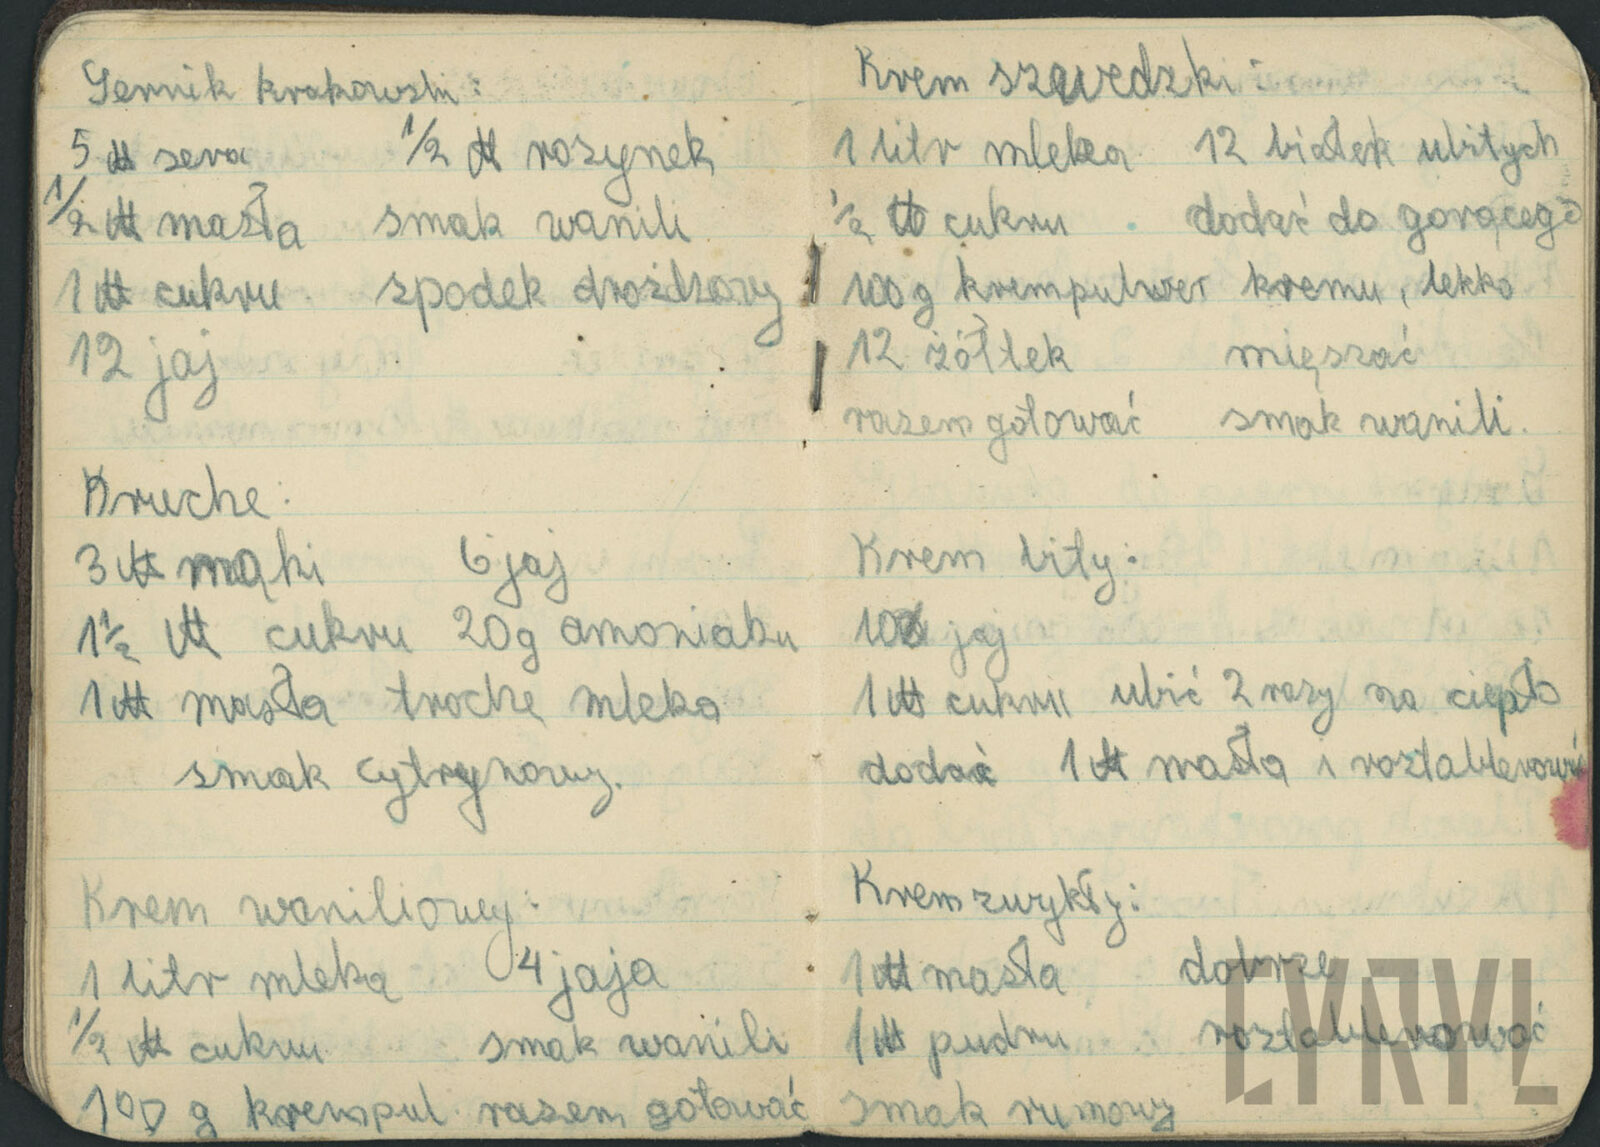 Sernik krakowski:
5 ℔ sera ½ ℔ rozynek
½ ℔ masła smak wanili
1 ℔ cukru spodek drożdżowy
12 jaj
Kruche:
3 ℔ mąki 6 jaj
1½ ℔ cukru 20g amoniaku
1 ℔ masła trochę mleka
smak cytrynowy.
Krem waniliowy:
1 litr mleka 4 jaja
½ ℔ cukru smak wanili
100 g krempul. razem gotować
Krem szwedzki:
1 litr mleka 12 białek ubitych
½ ℔ cukru dodać do gorącego
100g krempulwer kremu, lekko
12 żółtek mięszać
razem gotować smak wanili.
Krem bity:
10 jaj
1 ℔ cukru ubić 2 razy na ciepło
dodać 1 ℔ masła i roztablerować
Krem zwykły:
1 ℔ masła dobrze
1 ℔ pudru roztablerować
smak rumowy
CYRYL